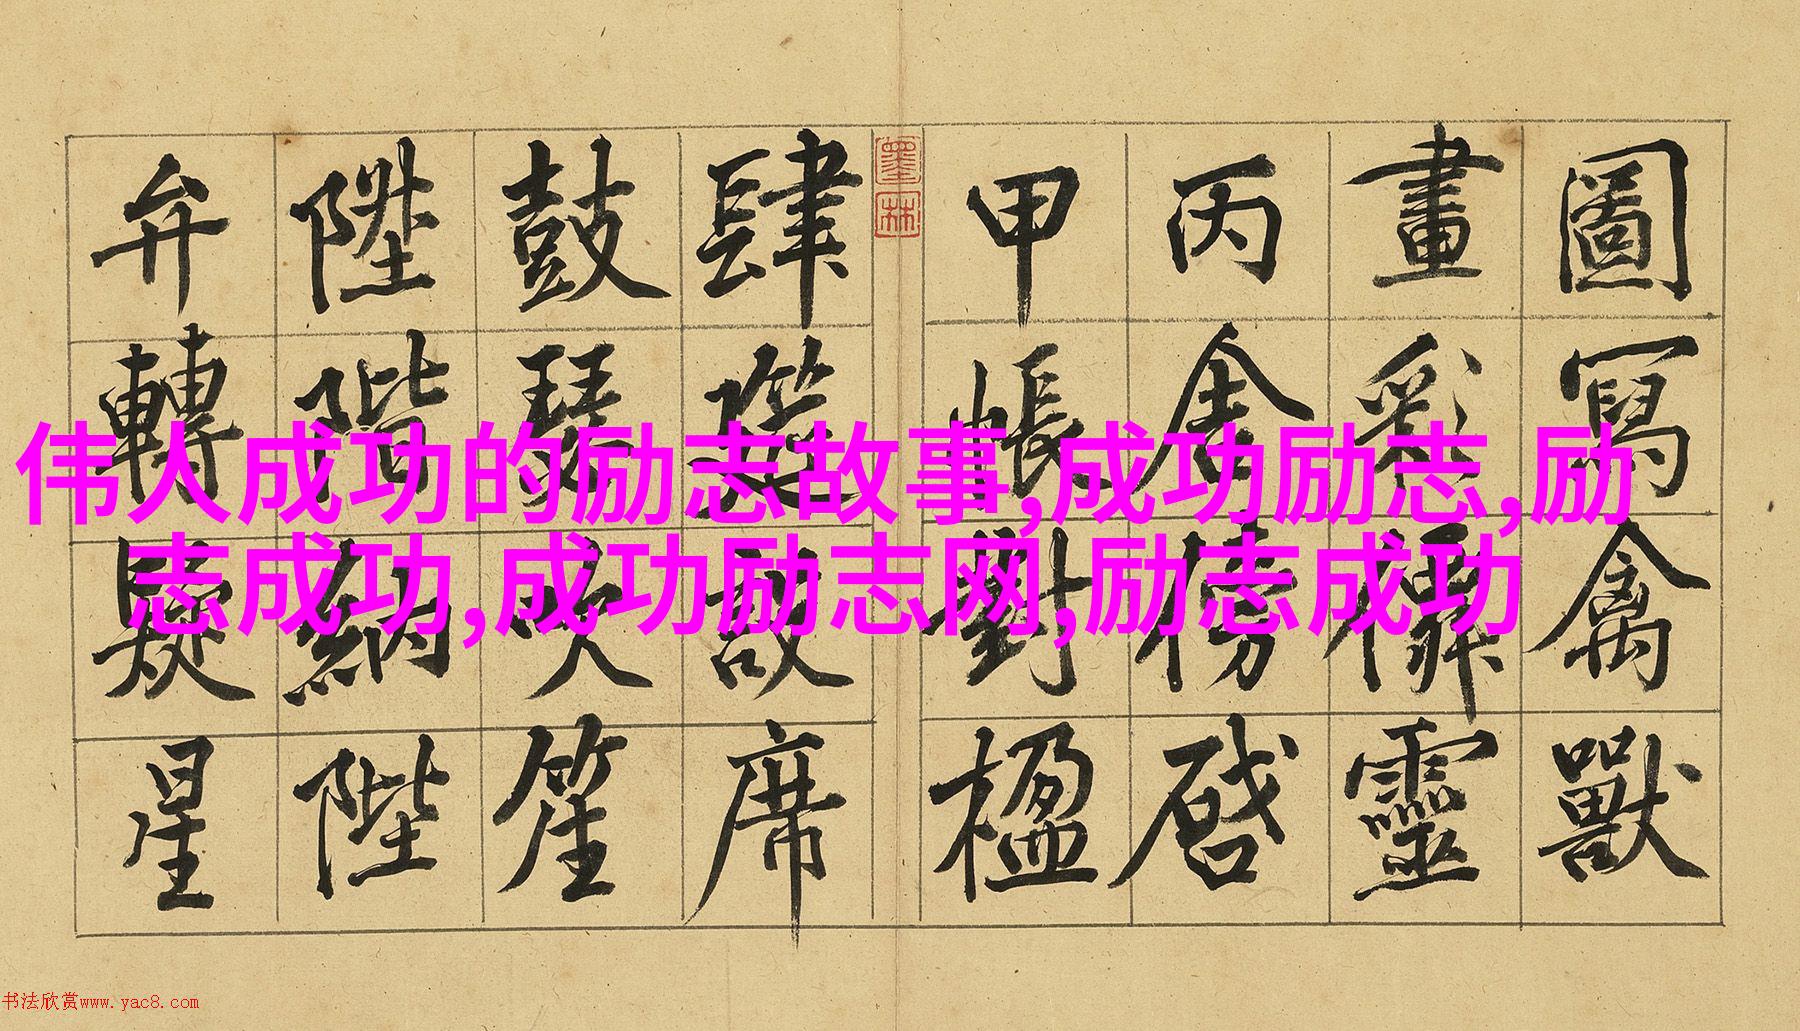 圖寫禽獸
畫彩僊靈
丙舍傍啓
甲帳對楹
墨林
肆筵設席
鼓瑟吹笙
陞階納陛
弁轉疑星
伟人成功的励志故事,成功励志,励
志成功,成功励志网,励志成功
书法欣赏www.yac8.com